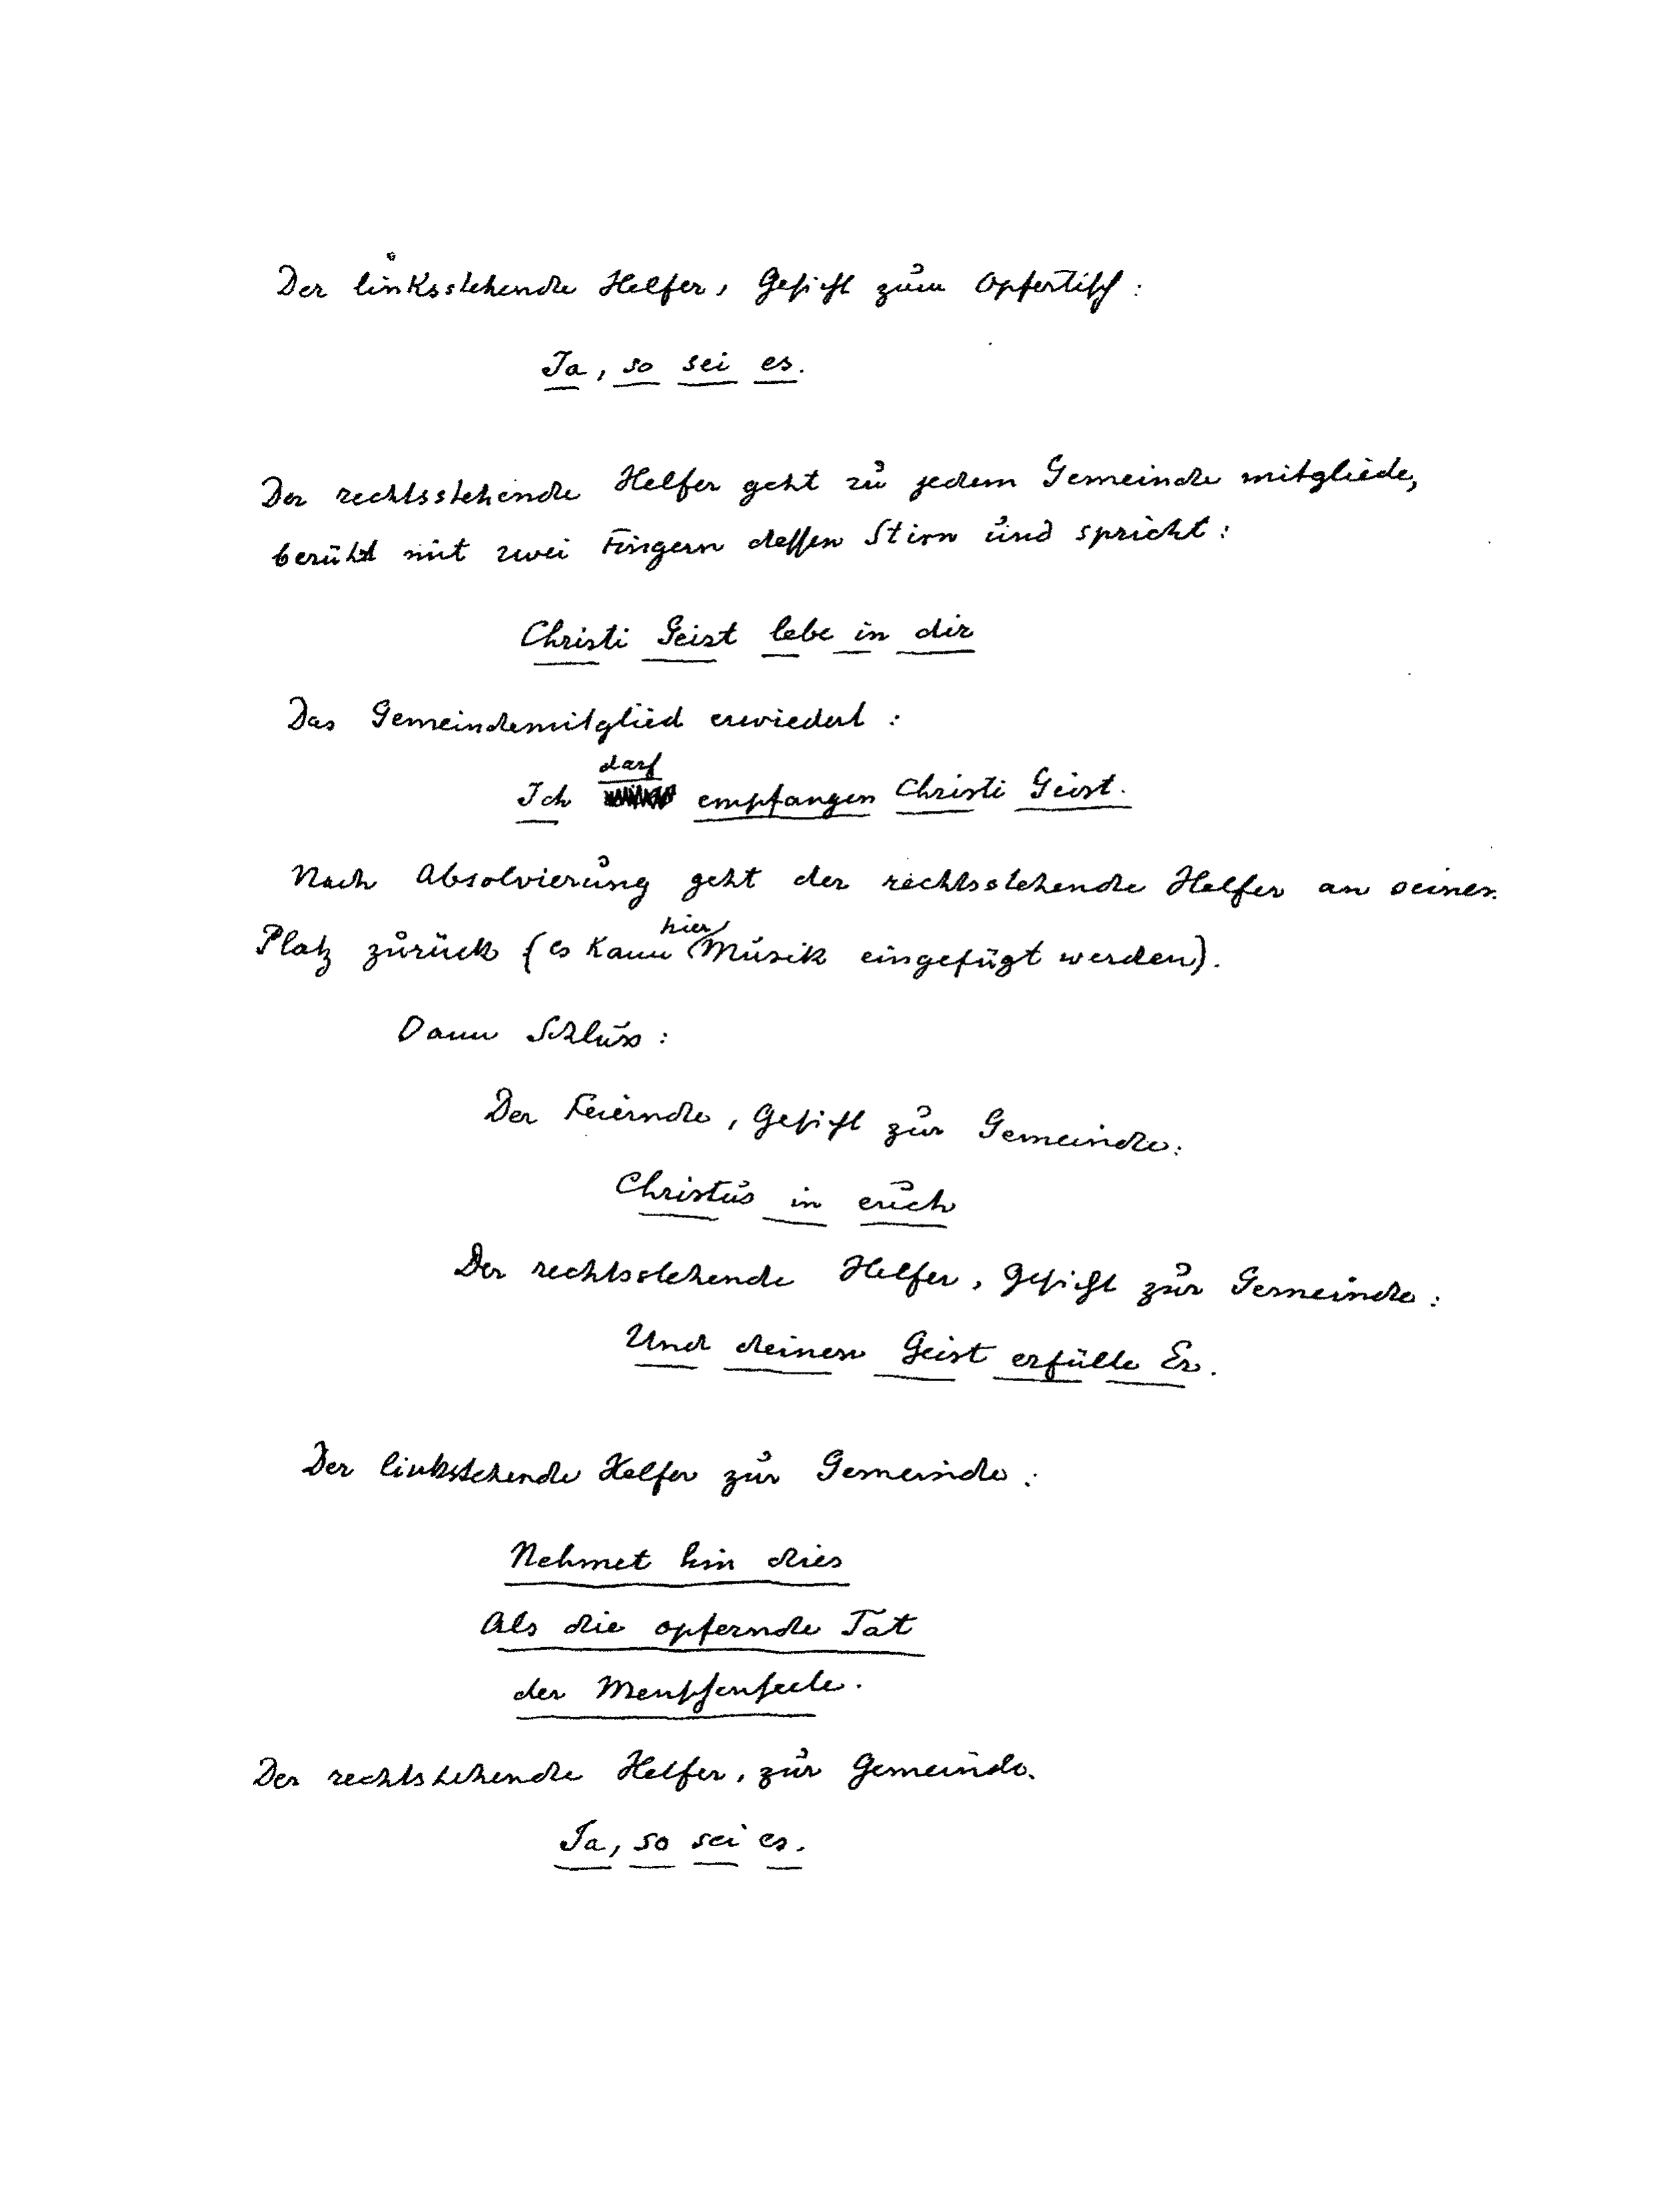 Der linksstehende Helfer, Gesicht zum Opfertisch:
Ja, so sei es.
Der rechtsstehende Helfer geht zu jedem Gemeinde mitgliede,
berüht mit zwei Fingern dessen Stirn und spricht:
Christi Geist lebe in dir
Das Gemeindemitglied erwiedert:
darf
Ich empfangen Christi Geist.
Nach Absolvierung geht der rechtsstehende Helfer an seinen
hier
Platz zurück (es kann Musik eingefügt werden).
Dann Schluss:
Der Feiernde, Gesicht zur Gemeinde:
Christus in euch
Der rechtsstehende Helfer, Gesicht zur Gemeinde:
Und deinen Geist erfülle Er.
Der linksstehende Helfer zur Gemeinde:
Nehmet hin dies
Als die opfernde Tat
der Menschenseele.
Der rechtsstehende Helfer, zur Gemeinde.
Ja, so sei es.